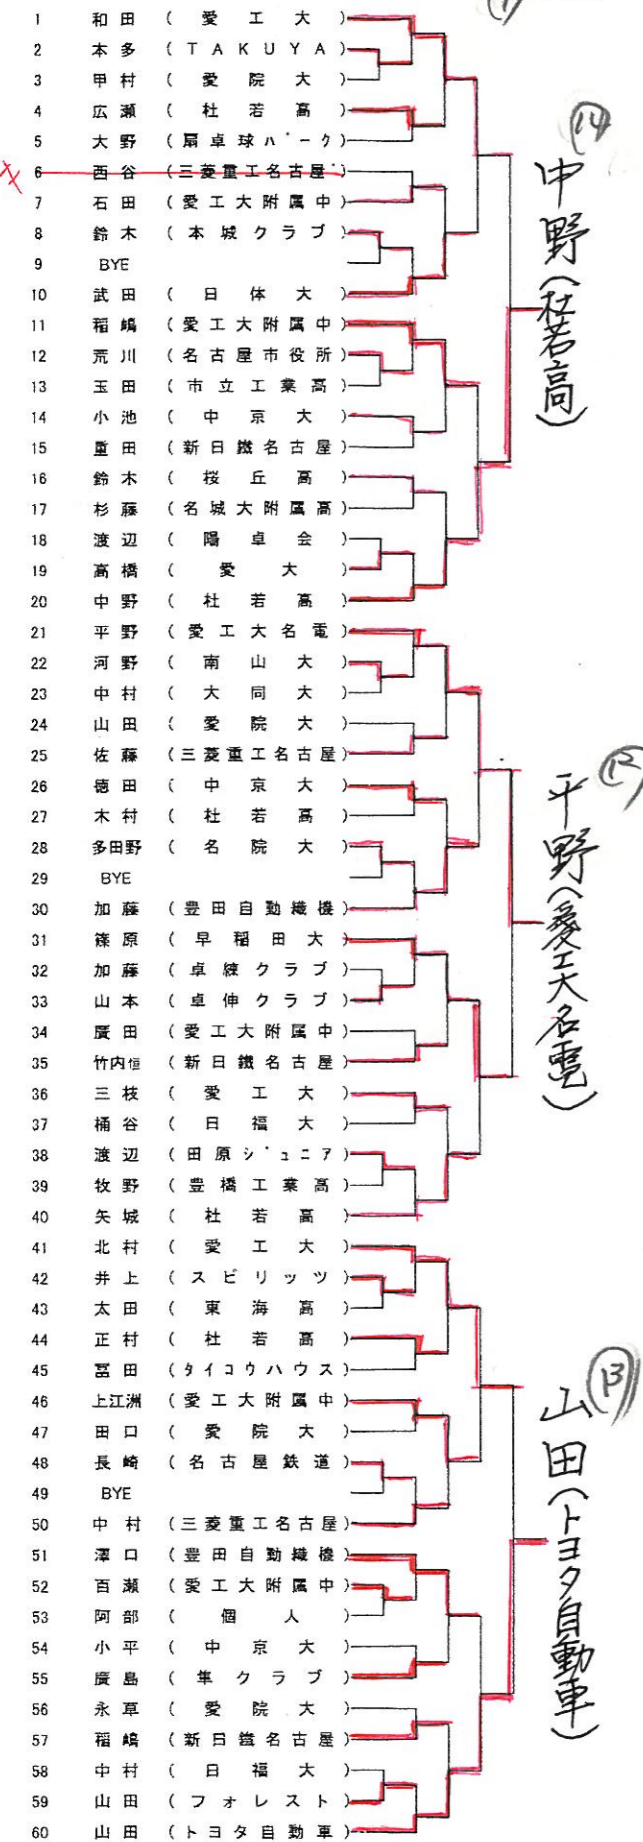 1 和田 (愛工大)
2 本多 (TAKUYA)
3 甲村 (愛院大)
4 広瀬 (杜若高)
5 大野 (扇卓球パーク)
6 西谷 (三菱重工名古屋)
7 石田 (愛工大附属中)
8 鈴木 (本城クラブ)
9 BYE
10 武田 (日体大)
11 稲嶋 (愛工大附属中)
12 荒川 (名古屋市役所)
13 玉田 (市立工業高)
14 小池 (中京大)
15 重田 (新日鐵名古屋)
16 鈴木 (桜丘高)
17 杉藤 (名城大附属高)
18 渡辺 (陽卓会)
19 高橋 (愛大)
20 中野 (杜若高)
⑭
中野(杜若高)
21 平野 (愛工大名電)
22 河野 (南山大)
23 中村 (大同大)
24 山田 (愛院大)
25 佐藤 (三菱重工名古屋)
26 徳田 (中京大)
27 木村 (杜若高)
28 多田野 (名院大)
29 BYE
30 加藤 (豊田自動織機)
31 篠原 (早稲田大)
32 加藤 (卓練クラブ)
33 山本 (卓伸クラブ)
34 廣田 (愛工大附属中)
35 竹内恒 (新日鐵名古屋)
36 三枝 (愛工大)
37 桶谷 (日福大)
38 渡辺 (田原ジュニア)
39 牧野 (豊橋工業高)
40 矢城 (杜若高)
⑫
平野(愛工大名電)
41 北村 (愛工大)
42 井上 (スピリッツ)
43 太田 (東海高)
44 正村 (杜若高)
45 冨田 (タイコウハウス)
46 上江洲 (愛工大附属中)
47 田口 (愛院大)
48 長崎 (名古屋鉄道)
49 BYE
50 中村 (三菱重工名古屋)
51 澤口 (豊田自動織機)
52 百瀬 (愛工大附属中)
53 阿部 (個人)
54 小平 (中京大)
55 廣島 (隼クラブ)
56 永草 (愛院大)
57 稲嶋 (新日鐵名古屋)
58 中村 (日福大)
59 山田 (フォレスト)
60 山田 (トヨタ自動車)
⑬
山田(トヨタ自動車)